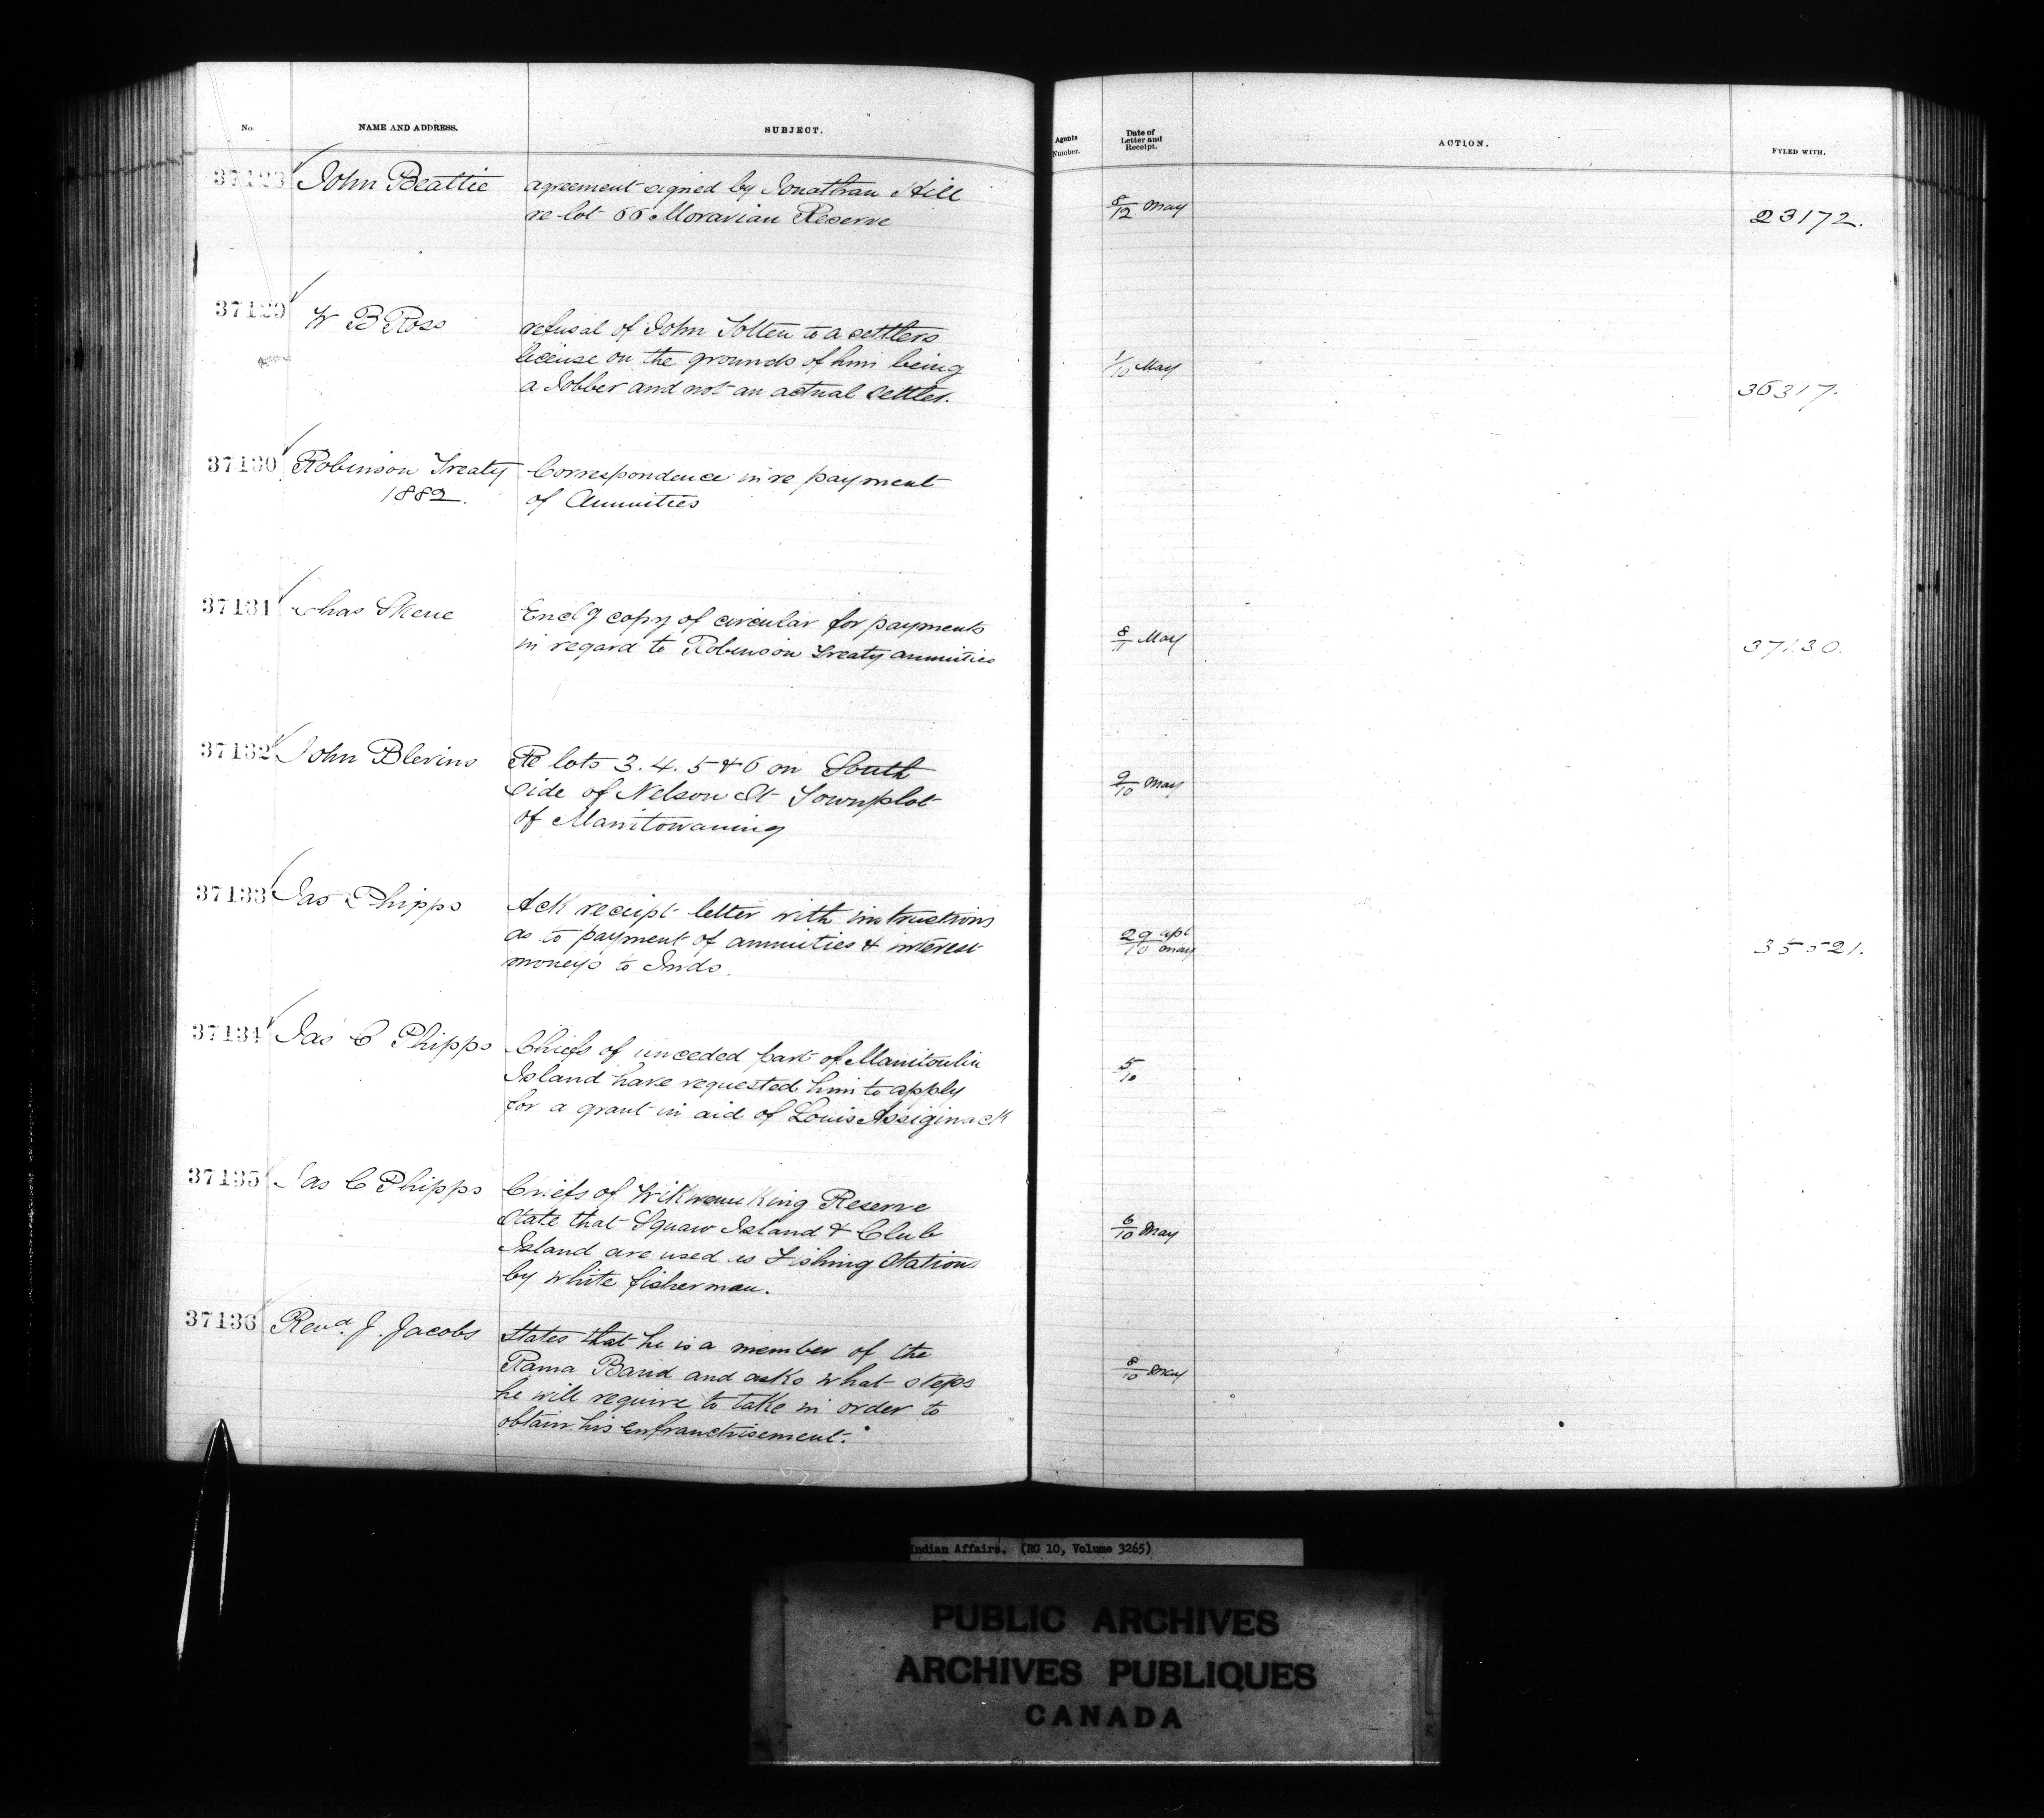 No. NAME AND ADDRESS. SUBJECT. Agents Number. Date of Letter and Receipt. ACTION. FYLED WITH.
37128 John Beattie agreement signed by Jonathan Hill 8/12 May 23172.
re lot 66 Moravian Reserve
37129 W B Ross refusal of John Totten to a settlers 1/10 May 36317.
license on the grounds of him being
a Jobber and not an actual settler.
37130 Robinson Treaty Correspondence in re payment
1882. of Annuities
37131 Chas Skene Encl'g copy of circular for payments 8/11 May 37130.
in regard to Robinson Treaty annuities
37132 John Blevins Re lots 3. 4. 5 & 6 on South 9/10 May
side of Nelson St Townplot
of Manitowaning
37133 Jas Phipps Ack receipt letter with instructions 29 apl/10 may 35521.
as to payment of annuities & interest
moneys to Inds.
37134 Jas C Phipps Chiefs of unceded part of Manitoulin 5/10
Island have requested him to apply
for a grant in aid of Louis Assiginack
37135 Jas C Phipps Chiefs of Wikwemikong Reserve 6/10 May
state that Squaw Island & Club
Island are used as Fishing Stations
by white fisherman.
37136 Revd. J. Jacobs States that he is a member of the 8/10 May
Rama Band and asks what steps
he will require to take in order to
obtain his enfranchisement.
Indian Affairs. (RG 10, Volume 3265)
PUBLIC ARCHIVES
ARCHIVES PUBLIQUES
CANADA